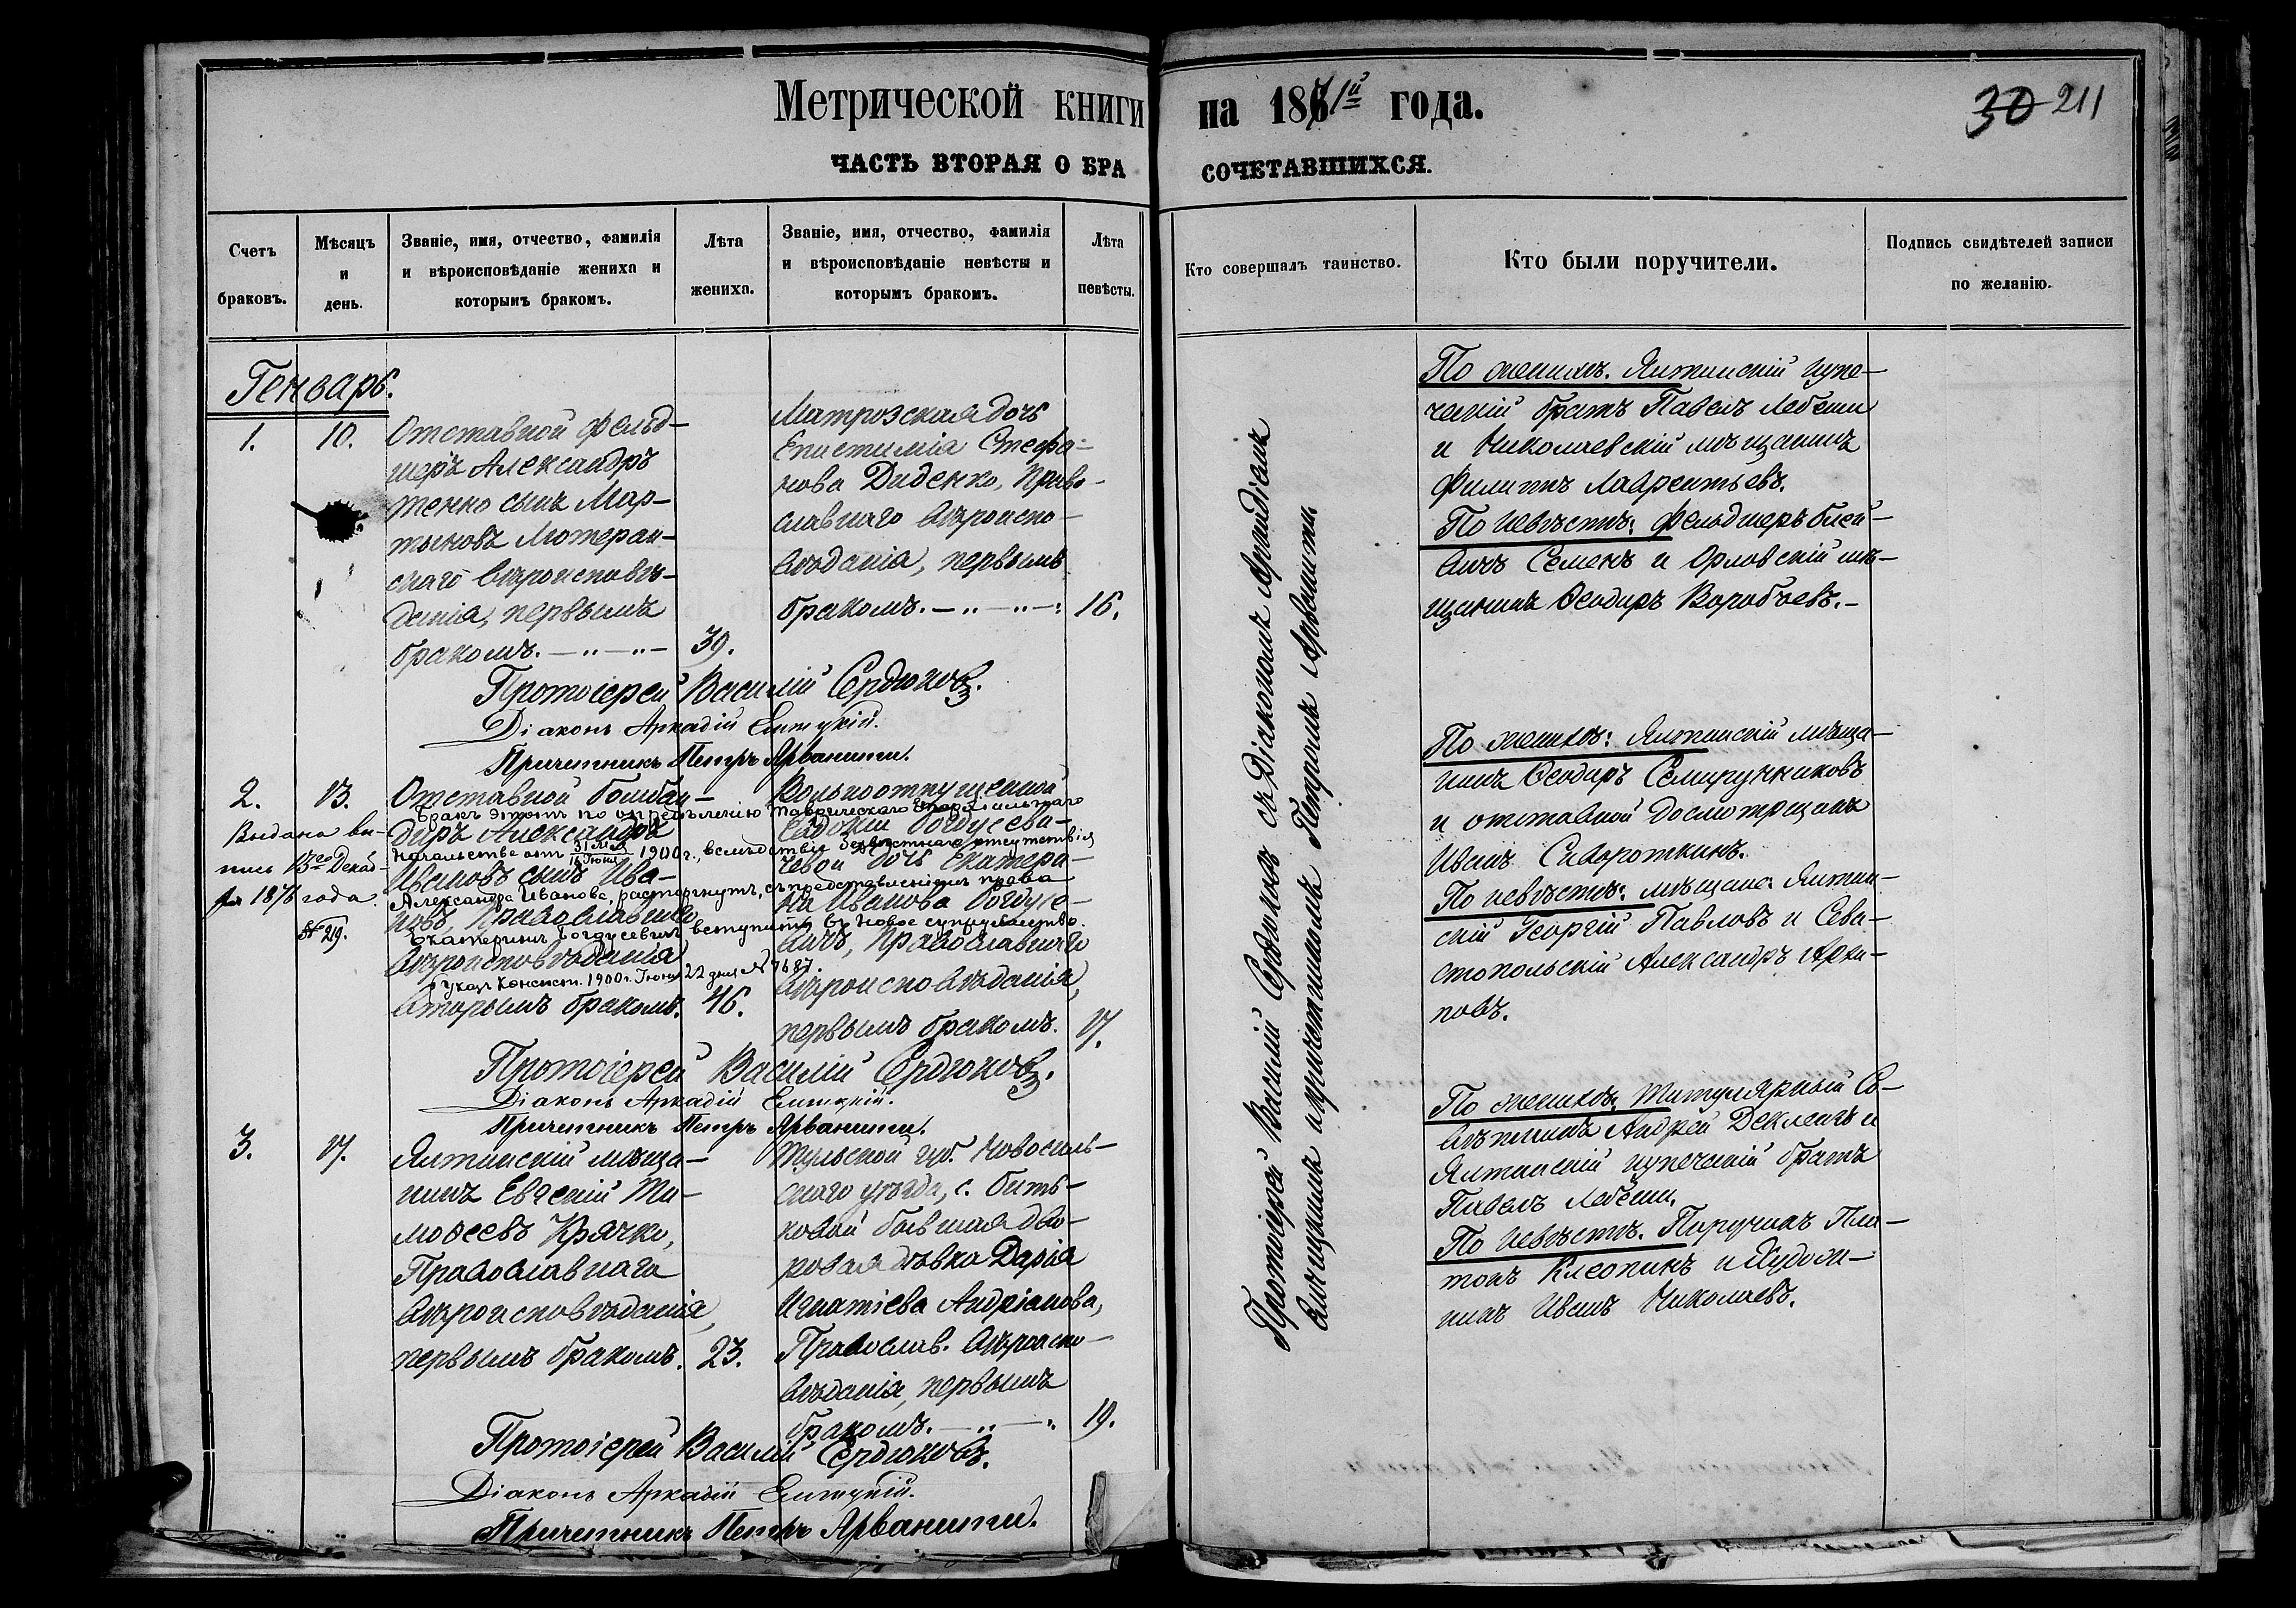 Метрической книги на 1871й года.
30 211
ЧАСТЬ ВТОРАЯ О БРАКОСОЧЕТАВШИХСЯ.
Счетъ браковъ.
Мѣсяцъ и день.
Званіе, имя, отчество, фамилія
и вѣроисповѣданіе жениха и
которымъ бракомъ.
Лѣта
жениха.
Званіе, имя, отчество, фамилія
и вѣроисповѣданіе невѣсты и
которымъ бракомъ.
Лѣта
невѣсты.
Кто совершалъ таинство.
Кто были поручители.
Подпись свидѣтелей записи
по желанію.
Генварь.
1.
10.
Отставной фельд-
шеръ Александръ
тенко сынъ Мар-
тыновъ Лютеран-
скаго вѣроисповѣ-
данія, первымъ
бракомъ.
39.
Матрозская дочь
Епистимія Стефа-
нова Диденко, Право-
славнаго вѣроиспо-
вѣданія, первымъ
бракомъ.
16.
По женихѣ. Ялтинскій купе-
ческій братъ Павелъ Лебеши
и Николаевскій мѣщанинъ
Филиппъ Лаврентьевъ.
По невѣстѣ: фельдшеръ
Семенъ и Орловскій мѣ-
щанинъ Ѳеодоръ Воробьевъ.
Протоіерей Василій Сердюковъ.
Діаконъ Аркадій Елицкій.
Причетникъ Петръ Арванити.
2.
13.
Выдана вы-
пись 13го Декаб-
ря 1876 года.
№ 219.
Отставной бомбан-
диръ Александръ
Ивановъ сынъ Ива-
новъ, Православнаго
вѣроисповѣданія
вторымъ бракомъ.
46.
Бракъ этотъ по опредѣленію Таврическаго Епархіальнаго
Начальства отъ 31 Мая / 16 Іюня 1900 г., вслѣдствіе безвѣстнаго отсутствія
Александра Иванова, расторгнутъ, съ предоставленіемъ права
Екатеринѣ Богдусевичъ вступить въ новое супружество.
Указъ Консист. 1900 г. Іюня 22 дня № 7687.
Вольноотпущенной
Евдокіи Богдусеви-
чевой дочь Екатери-
на Иванова Богдусе-
вичъ, Православнаго
вѣроисповѣданія,
первымъ бракомъ.
17.
По женихѣ: Ялтинскій мѣща-
нинъ Ѳеодоръ Семиручниковъ
и отставной Досмотрщикъ
Иванъ Сивороткинъ.
По невѣстѣ: мѣщане: Ялтин-
скій Георгій Павловъ и Сева-
стопольскій Александръ Архи-
повъ.
Протоіерей Василій Сердюковъ.
Діаконъ Аркадій Елицкій.
Причетникъ Петръ Арванити.
3.
17.
Ялтинскій мѣща-
нинъ Евгеній Ти-
моѳеевъ Крячко,
Православнаго
вѣроисповѣданія,
первымъ бракомъ.
23.
Тульской губ. Новосиль-
скаго уѣзда, с. Бить-
ковой бывшая дво-
ровая дѣвка Дарія
Игнатіева Андріанова,
Православ. вѣроиспо-
вѣданія, первымъ
бракомъ.
19.
По женихѣ: Титулярный Со-
вѣтникъ Андрей Деклеагъ и
Ялтинскій купеческій братъ
Павелъ Лебеши.
По невѣстѣ. Поручикъ Пла-
тонъ Клеопинъ и Художн-
никъ Иванъ Николаевъ.
Протоіерей Василій Сердюковъ.
Діаконъ Аркадій Елицкій.
Причетникъ Петръ Арванити.
Протоіерей Василій Сердюковъ съ Діакономъ Аркадіемъ
Елицкимъ и причетникомъ Петромъ Арванити.